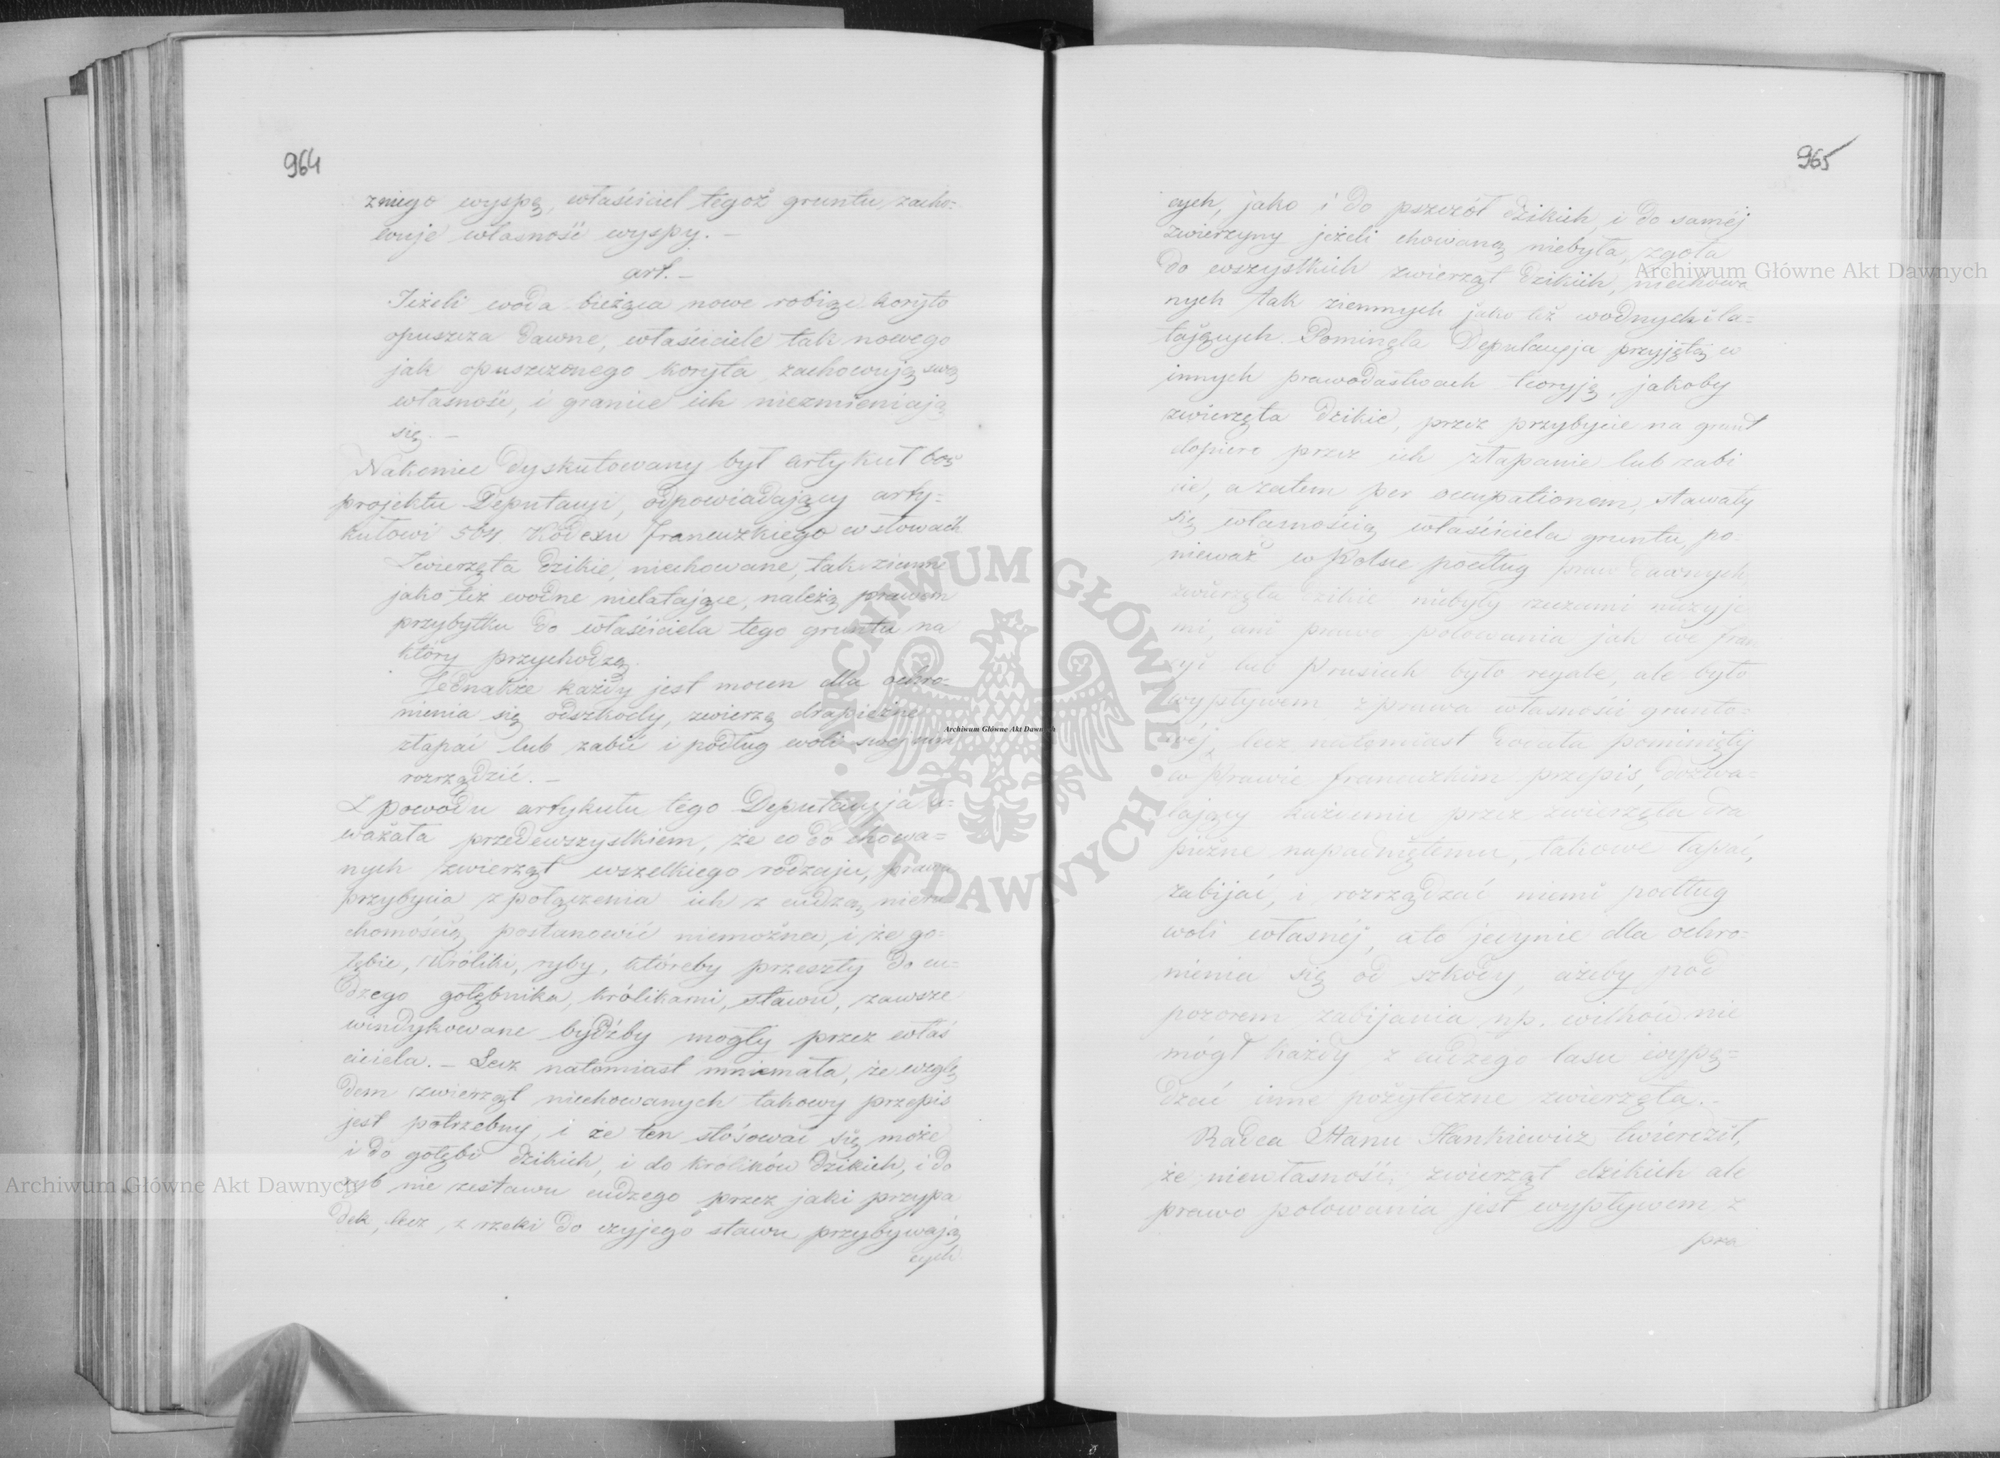 964
zniego wyspę, właściciel tegoż gruntu, zacho-
wuje własność wyspy. -
art. -
Jeżeli woda bieżąca nowe robiąc koryto
opuszcza dawne, właściciele tak nowego
jak opuszczonego koryta, zachowują swą
własność, i granice ich niezmieniają
się. -
Nakoniec dyskutowany był artykuł 605
projektu Deputacyi, odpowiadający arty-
kułowi 564 Kodexu francuzkiego w słowach
Zwierzęta dzikie, niechowane, tak ziemne
jako też wodne nielatające, należą prawem
przybytku do właściciela tego gruntu na
który przychodzą.
Jednakże każdy jest mocen dla ochro-
nienia się odszkody, zwierzę drapieżne
złapać lub zabić i podług woli swej niem
rozrządzić. -
Z powodu artykułu tego Deputacyja u-
ważała przedewszystkiem, że co do chowa-
nych zwierząt wszelkiego rodzaju, prawa
przybycia z połączenia ich z cudzą nieru
chomością postanowić niemożna, i że go-
łębie, króliki, ryby, któreby przeszły do cu-
dzego gołębnika, królikarni, stawu, zawsze
windykowane bydźby mogły przez właś
ciciela. - Lecz natomiast mniemała, że wzglę
dem zwierząt niechowanych takowy przepis
jest potrzebny, i że ten stósować się może
i do gołębi dzikich, i do królików dzikich, i do
ryb nie zestawu cudzego przez jaki przypa
dek, lecz z rzeki do czyjego stawu przybywają
cych
965
cych, jako i do pszczół dzikich, i do saméj
zwierzyny jeżeli chowaną niebyła, zgoła
do wszystkich zwierząt dzikich, niechowa
nych tak ziemnych jako też wodnych i la-
tających. Pominęła Deputacyja przyjętą w
innych prawodastwach teoryję, jakoby
zwierzęta dzikie, przez przybycie na grunt
dopiero przez ich złapanie lub zabi
cie, a zatem per occupationem, stawały
się własnością właściciela gruntu, po-
nieważ w Polsce podług praw dawnych,
zwierzęta dzikie niebyły rzeczami niczyje
mi, ani prawo polowania jak we Fran
cyi lub Prusiech było regale, ale było
wypływem z prawa własności grunto-
wéj, lecz natomiast dodała pominięty
w prawie francuzkim przepis, dozwa-
lający każdemu przez zwierzęta dra
pieżne napadniętemu, takowe łapać,
zabijać, i rozrządzać niemi podług
woli własnéj, ato jedynie dla ochro-
nienia się od szkody, ażeby pod
pozorem zabijania np. wilków nie
mógł każdy z cudzego lasu wypę-
dzać inne pożyteczne zwierzęta. -
Radca Stanu Hankiewicz twierdził,
że niewłasność zwierząt dzikich ale
prawo polowania jest wypływem z
pra
Archiwum Główne Akt Dawnych
Archiwum Główne Akt Dawnych
Archiwum Główne Akt Dawnych
ARCHIWUM GŁÓWNE AKT DAWNYCH